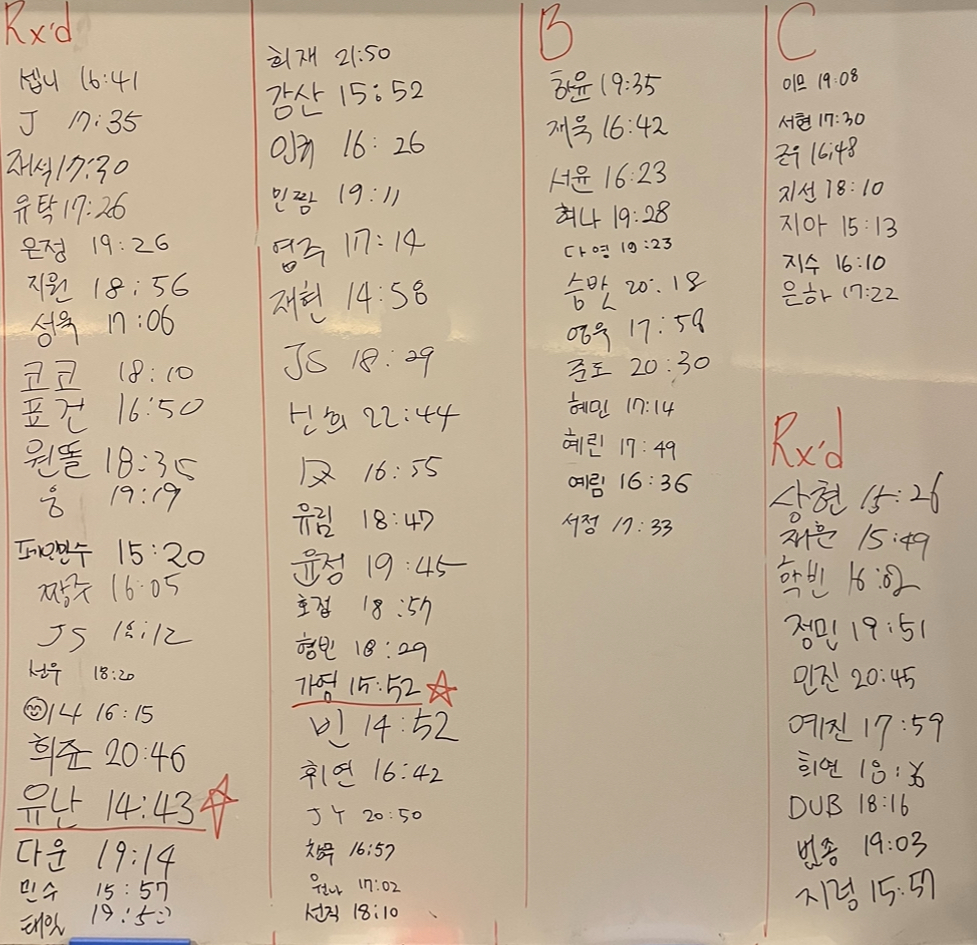 Rx'd
셉니 16:41
J 17:35
재석 17:30
유탁 17:26
은정 19:26
지원 18:56
성욱 17:06
코코 18:10
표건 16:50
원똘 18:35
웅 19:19
페인민수 15:20
짱주 16:05
JS 18:12
선우 18:20
14 16:15
희쥰 20:46
유난 14:43
다운 19:14
민수 15:57
태일
희재 21:50
강산 15:52
16:26
민짱 19:11
엽주 17:14
재현 14:58
JS 18:29
신희 22:44
16:55
유림 18:47
윤정 19:45
호접 18:57
형빈 18:29
가영 15:52
빈 14:52
휘연 16:42
JY 20:50
16:57
17:02
선직 18:10
B
하윤 19:35
재욱 16:42
서윤 16:23
희나 19:28
다영 19:23
숨맛 20:18
영욱 17:58
준도 20:30
혜민 17:14
혜린 17:49
예림 16:36
서정 17:33
C
이모 19:08
서현 17:30
근우 16:48
지선 18:10
지아 15:13
지수 16:10
은하 17:22
Rx'd
상현 15:26
재훈 15:49
학빈 16:02
정민 19:51
민진 20:45
예진 17:59
희연
DUB 18:16
범송 19:03
지정 15:57